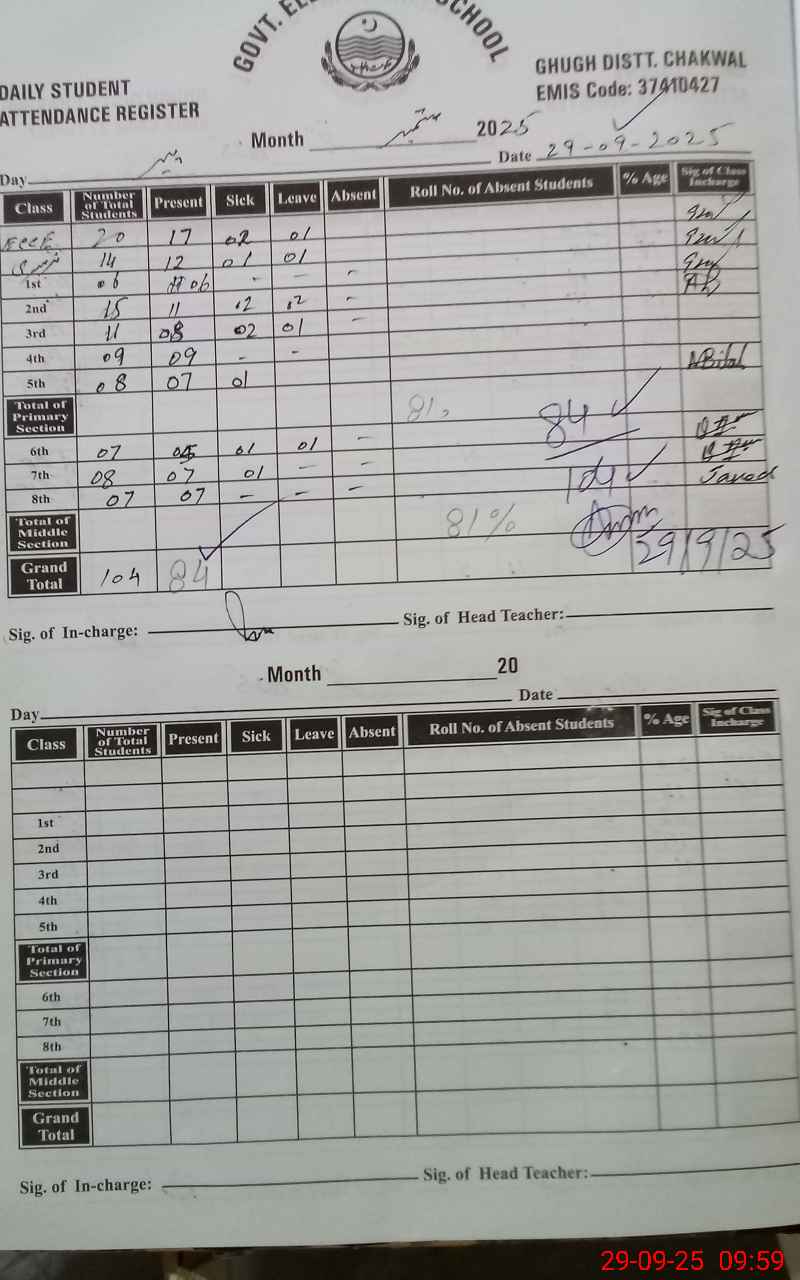 GOVT. EL SCHOOL
DAILY STUDENT
ATTENDANCE REGISTER
GHUGH DISTT. CHAKWAL
EMIS Code: 37410427
Month ستمبر 2025
Day پیر Date 29-09-2025
Class Number of Total Students Present Sick Leave Absent Roll No. of Absent Students % Age Sig of Class Incharge
ECCE 20 17 02 01
14 12 01 01
1st 06 06 - - -
2nd 15 11 02 02 -
3rd 11 08 02 01 -
4th 09 09 - -
5th 08 07 01 NBilal
Total of Primary Section 81 84
6th 07 05 01 01 -
7th 08 07 01 - - Javed
8th 07 07 - - - 104
Total of Middle Section 81% 29/9/25
Grand Total 104 84
Sig. of In-charge: Sig. of Head Teacher:
Month 20
Day Date
Class Number of Total Students Present Sick Leave Absent Roll No. of Absent Students % Age Sig of Class Incharge
1st
2nd
3rd
4th
5th
Total of Primary Section
6th
7th
8th
Total of Middle Section
Grand Total
Sig. of In-charge: Sig. of Head Teacher:
29-09-25 09:59